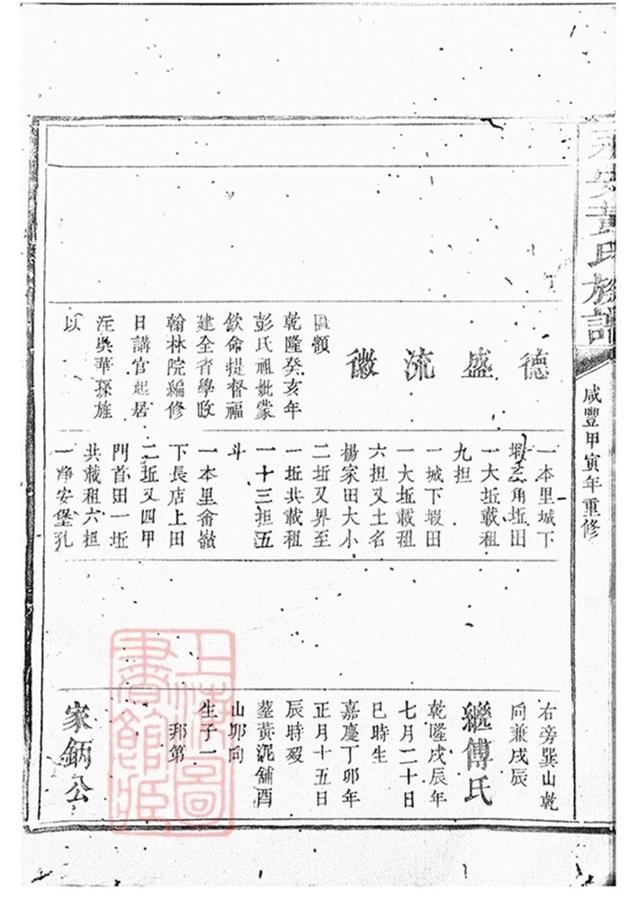 永安黃氏族譜
咸豐甲寅年重修
德盛流徽
匾額
乾隆癸亥年
彭氏祖妣蒙
欽命提督福
建全省學政
翰林院編修
日講官起居
注吳華孫旌
以
一本里城下
塅三角坵田
一大坵載租
九担
一城下塅田
一大坵載租
六担又土名
楊家田大小
二坵又界至
一坵共載租
一十三担五
斗
一本里畬嶺
下長店上田
二坵又四甲
門首田一坵
共載租六担
一淨安堡孔
右旁巽山乾
向兼戌辰
繼傅氏
乾隆戌辰年
七月二十日
巳時生
嘉慶丁卯年
正月十五日
辰時歿
塟黃泥舖酉
山卯向
生子一
邦第
家鈵公
上海圖書館藏